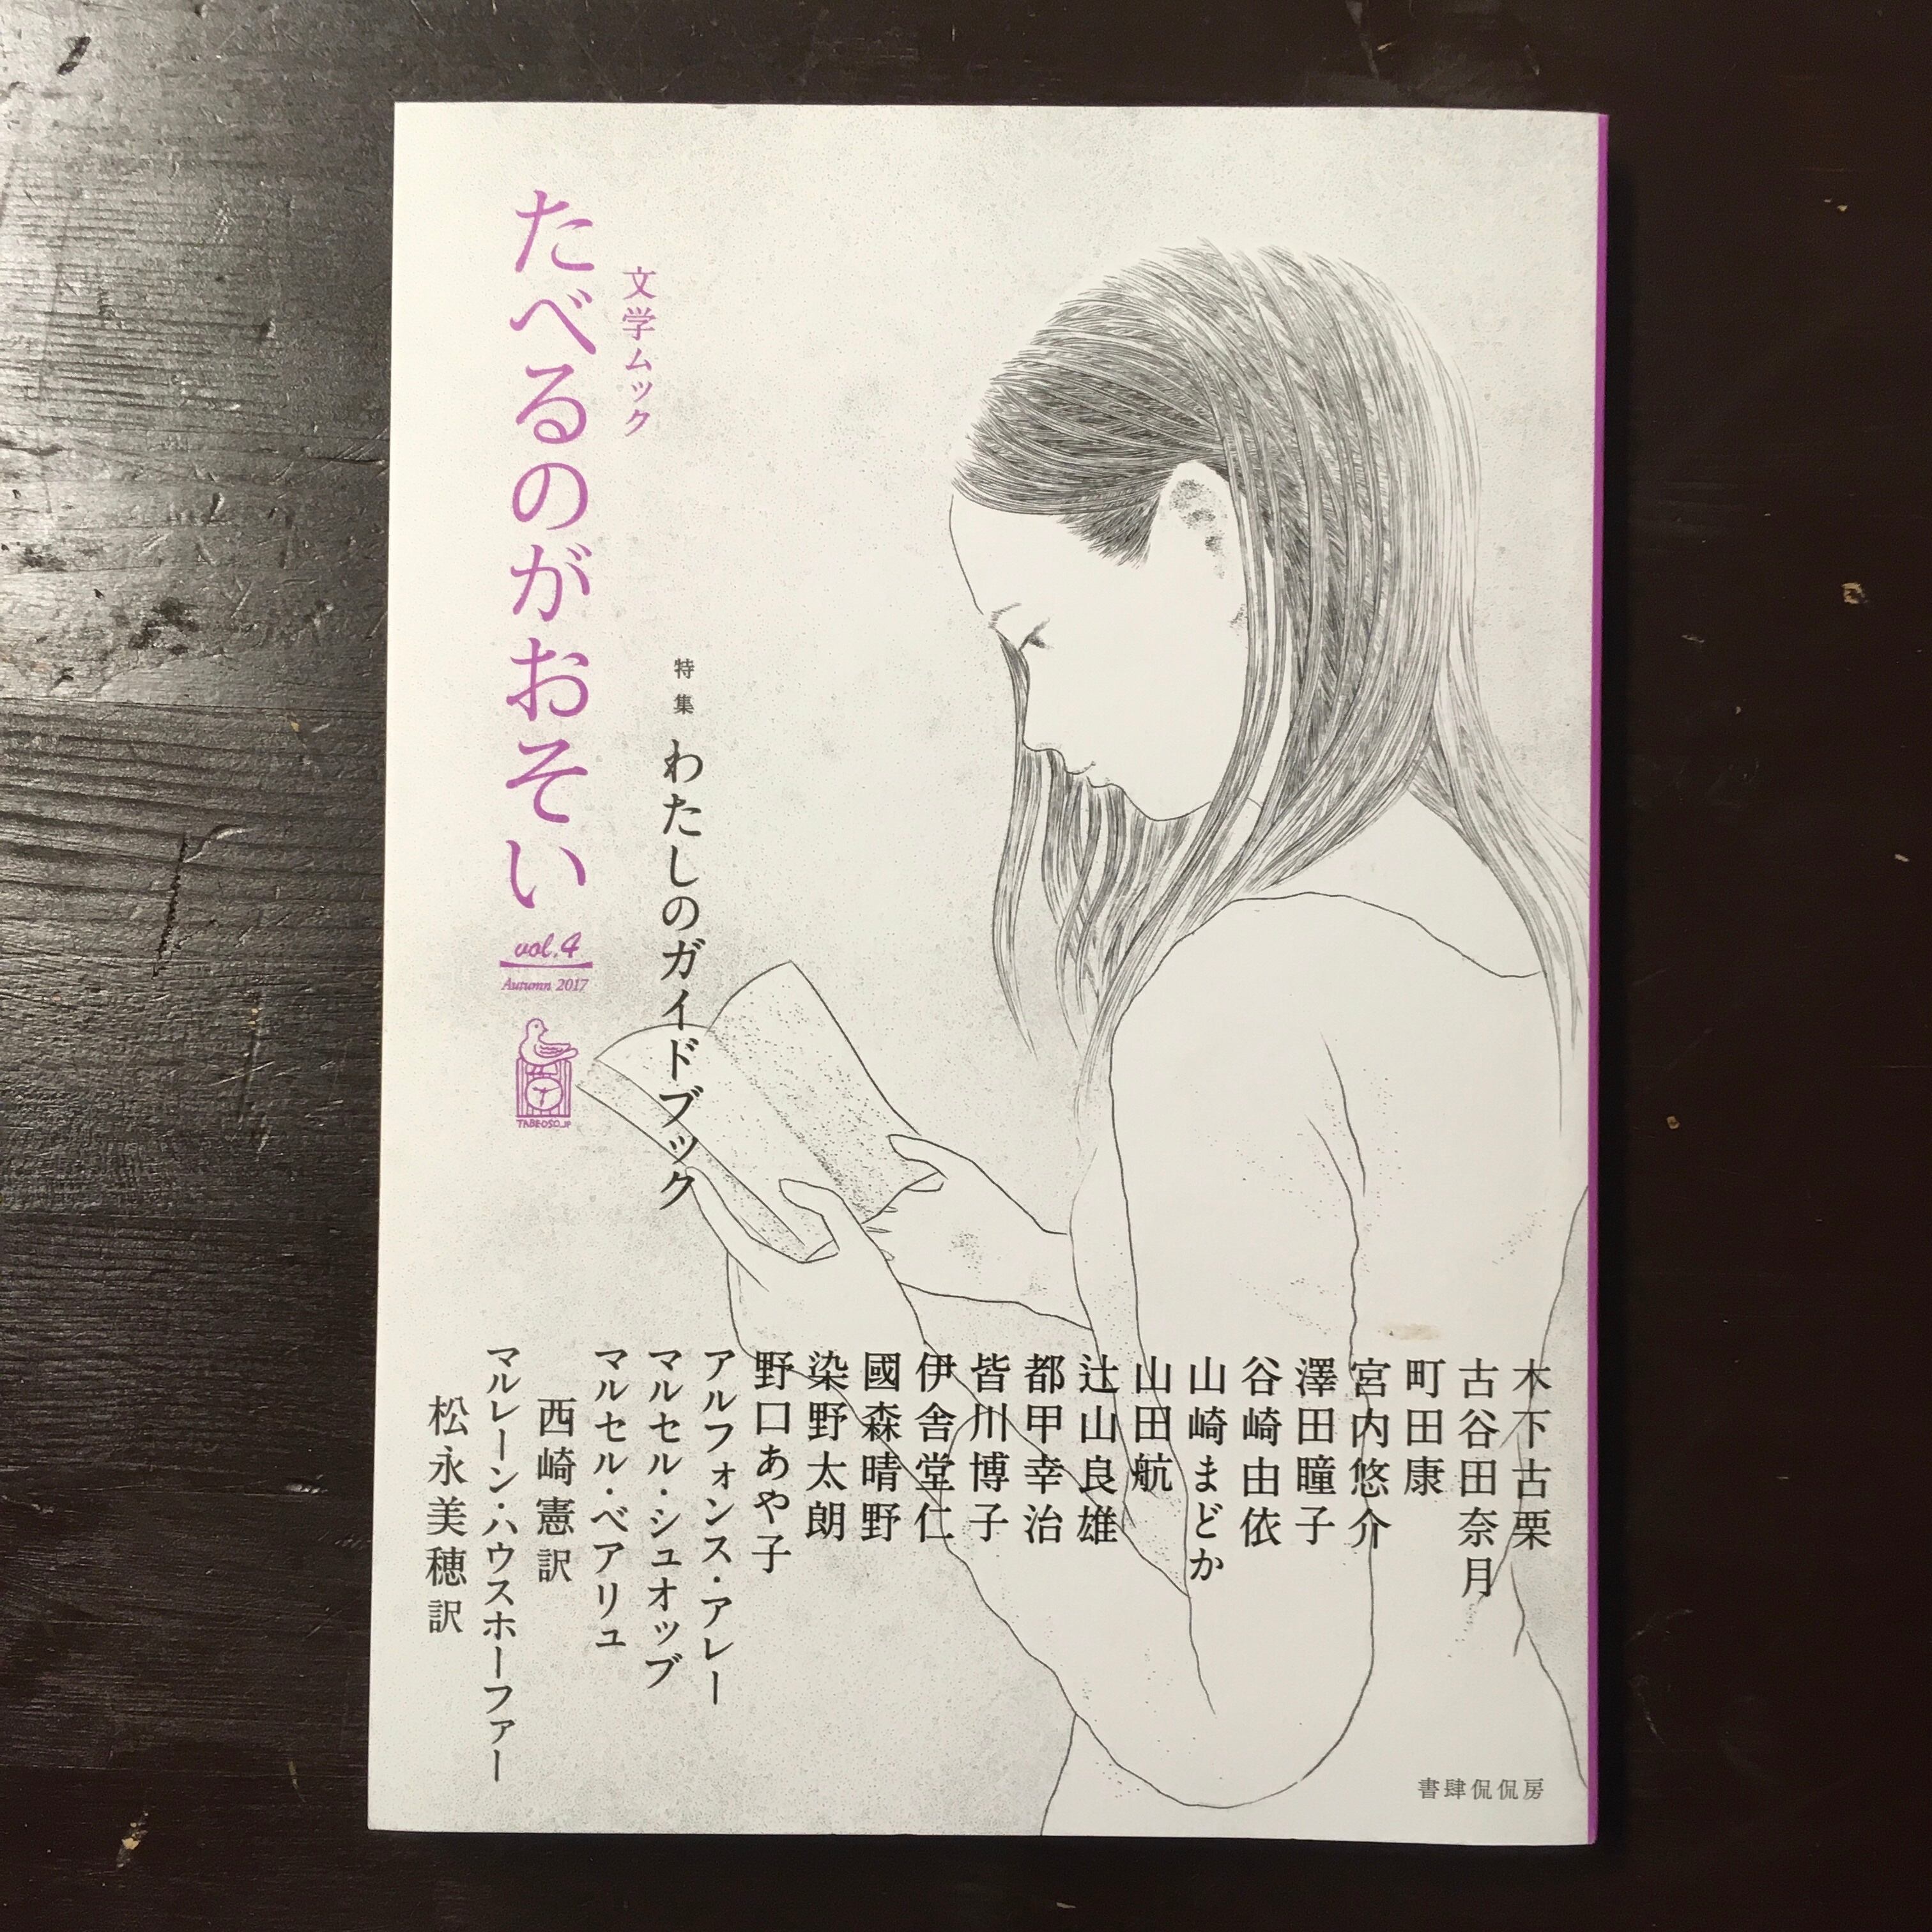 文学ムック
たべるのがおそい
vol.4
Autumn 2017
TABEOSO.JP
特集
わたしのガイドブック
木下古栗
古谷田奈月
町田康
宮内悠介
澤田瞳子
谷崎由依
山崎まどか
山田航
辻山良雄
都甲幸治
皆川博子
伊舎堂仁
國森晴野
染野太朗
野口あや子
アルフォンス・アレー
マルセル・シュオッブ
マルセル・ベアリュ
西崎憲 訳
マルレーン・ハウスホーファー
松永美穂 訳
書肆侃侃房